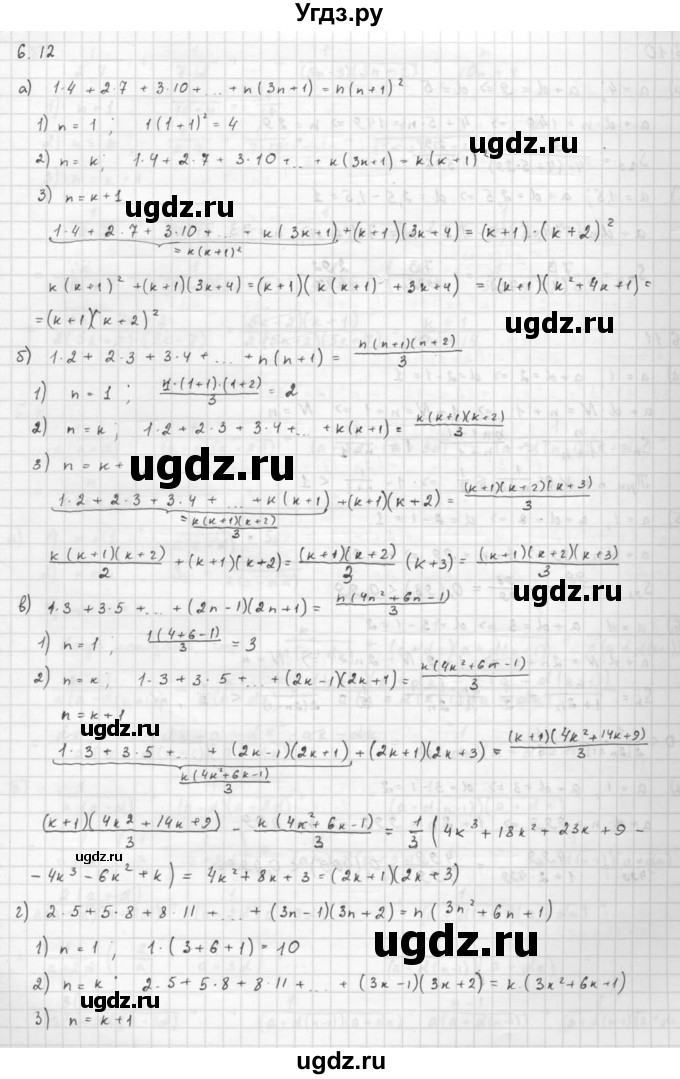 Угдз.ру
6. 12
а) 1·4 + 2·7 + 3·10 + ... + n(3n+1) = n(n+1)²
1) n = 1 ; 1(1+1)² = 4
2) n = k ; 1·4 + 2·7 + 3·10 + ... + k(3k+1) = k(k+1)²
3) n = k+1
ugdz.ru
1·4 + 2·7 + 3·10 + ... + k(3k+1) + (k+1)(3k+4) = (k+1)·(k+2)²
= k(k+1)²
ugdz.ru
k(k+1)² + (k+1)(3k+4) = (k+1)(k(k+1) + 3k+4) = (k+1)(k²+4k+1) =
= (k+1)(k+2)²
ugdz.ru
б) 1·2 + 2·3 + 3·4 + ... + n(n+1) = n(n+1)(n+2)/3
1) n = 1 ; 1·(1+1)·(1+2)/3 = 2
2) n = k ; 1·2 + 2·3 + 3·4 + ... + k(k+1) = k(k+1)(k+2)/3
3) n = k+
ugdz.ru
1·2 + 2·3 + 3·4 + ... + k(k+1) + (k+1)(k+2) = (k+1)(k+2)(k+3)/3
= k(k+1)(k+2)/3
k(k+1)(k+2)/2 + (k+1)(k+2) = (k+1)(k+2)/3 (k+3) = (k+1)(k+2)(k+3)/3
ugdz.ru
в) 1·3 + 3·5 + ... + (2n-1)(2n+1) = n(4n²+6n-1)/3
1) n = 1 ; 1(4+6-1)/3 = 3
2) n = k ; 1·3 + 3·5 + ... + (2k-1)(2k+1) = k(4k²+6k-1)/3
n = k+1
ugdz.ru
1·3 + 3·5 + ... + (2k-1)(2k+1) + (2k+1)(2k+3) = (k+1)(4k²+14k+9)/3
k(4k²+6k-1)/3
ugdz.ru
(k+1)(4k2+14k+9)/3 - k(4k²+6k-1)/3 = 1/3 (4k³+18k²+23k+9 -
ugdz.ru
- 4k³ - 6k² + k) = 4k²+8k+3 = (2k+1)(2k+3)
г) 2·5 + 5·8 + 8·11 + ... + (3n-1)(3n+2) = n(3n²+6n+1)
1) n = 1 ; 1·(3+6+1) = 10
ugdz.ru
2) n = k ; 2·5 + 5·8 + 8·11 + ... + (3k-1)(3k+2) = k(3k²+6k+1)
ugdz.ru
3) n = k+1
ugdz.ru